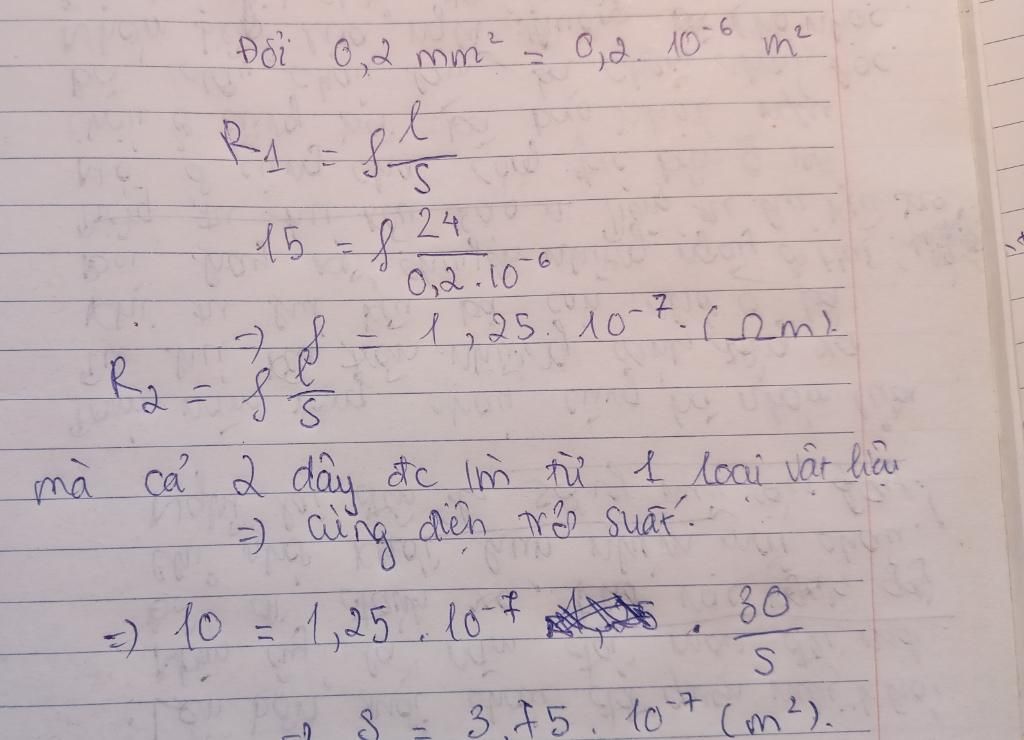 Đổi 0,2 mm² = 0,2. 10⁻⁶ m²
R₁ = ρ l/S
15 = ρ 24/0,2.10⁻⁶
=> ρ = 1,25. 10⁻⁷. (Ωm).
R₂ = ρ l/S
mà cả 2 dây đc làm từ 1 loại vật liệu
=> cùng điện trở suất.
=> 10 = 1,25 . 10⁻⁷ . 30/S
=> S = 3,75. 10⁻⁷ (m²).